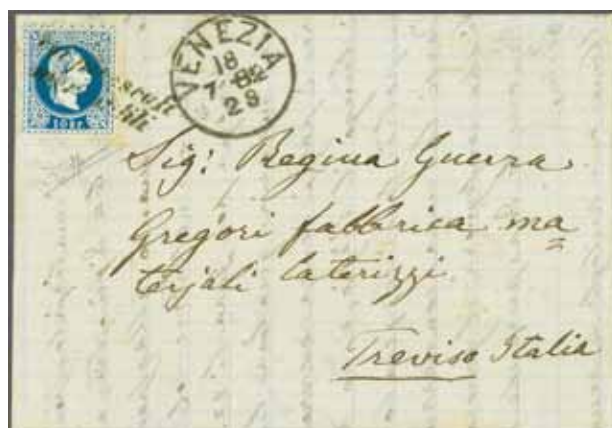 VENEZIA
18
7-82
2S
10 kr.
Sig: Regina Guerra
Gregori fabbrica ma
terjali laterizzi
Treviso Italia